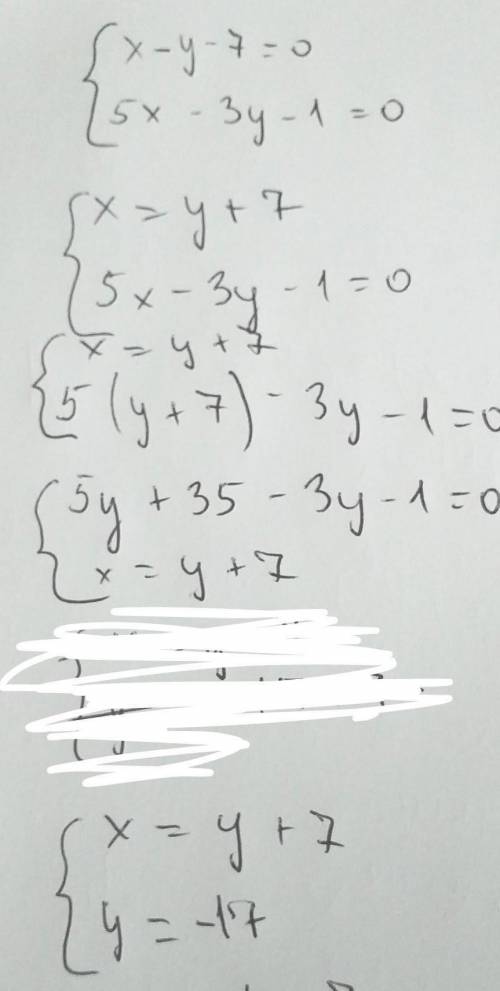 x - y - 7 = 0
5x - 3y - 1 = 0
x = y + 7
5x - 3y - 1 = 0
x = y + 7
5(y + 7) - 3y - 1 = 0
5y + 35 - 3y - 1 = 0
x = y + 7
x = y + 7
y = -17